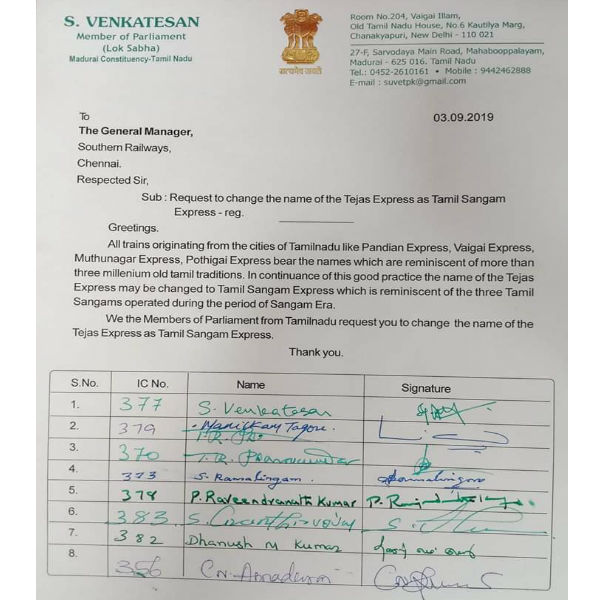 S. VENKATESAN
Member of Parliament
(Lok Sabha)
Madurai Constituency-Tamil Nadu
सत्यमेव जयते
Room No.204, Vaigai Illam,
Old Tamil Nadu House, No.6 Kautilya Marg,
Chanakyapuri, New Delhi - 110 021
27-F, Sarvodaya Main Road, Mahaboopalayam,
Madurai - 625 016. Tamil Nadu
Tel.: 0452-2610161 • Mobile : 9442462888
E-mail : suvetpk@gmail.com
03.09.2019
To
The General Manager,
Southern Railways,
Chennai.
Respected Sir,
Sub : Request to change the name of the Tejas Express as Tamil Sangam
Express - reg.
Greetings.
All trains originating from the cities of Tamilnadu like Pandian Express, Vaigai Express,
Muthunagar Express, Pothigai Express bear the names which are reminiscent of more than
three millenium old tamil traditions. In continuance of this good practice the name of the Tejas
Express may be changed to Tamil Sangam Express which is reminiscent of the three Tamil
Sangams operated during the period of Sangam Era.
We the Members of Parliament from Tamilnadu request you to change the name of the
Tejas Express as Tamil Sangam Express.
Thank you.
S.No. IC No. Name Signature
1. 377 S. Venkatesan
2. 379 Manickam Tagore.
3. 370
4. 373 S. Ramalingam. Ramalingam
5. 378 P. Raveendranath Kumar
6. 383 S.
7. 382 Dhanush M Kumar
8. 356 C.N.